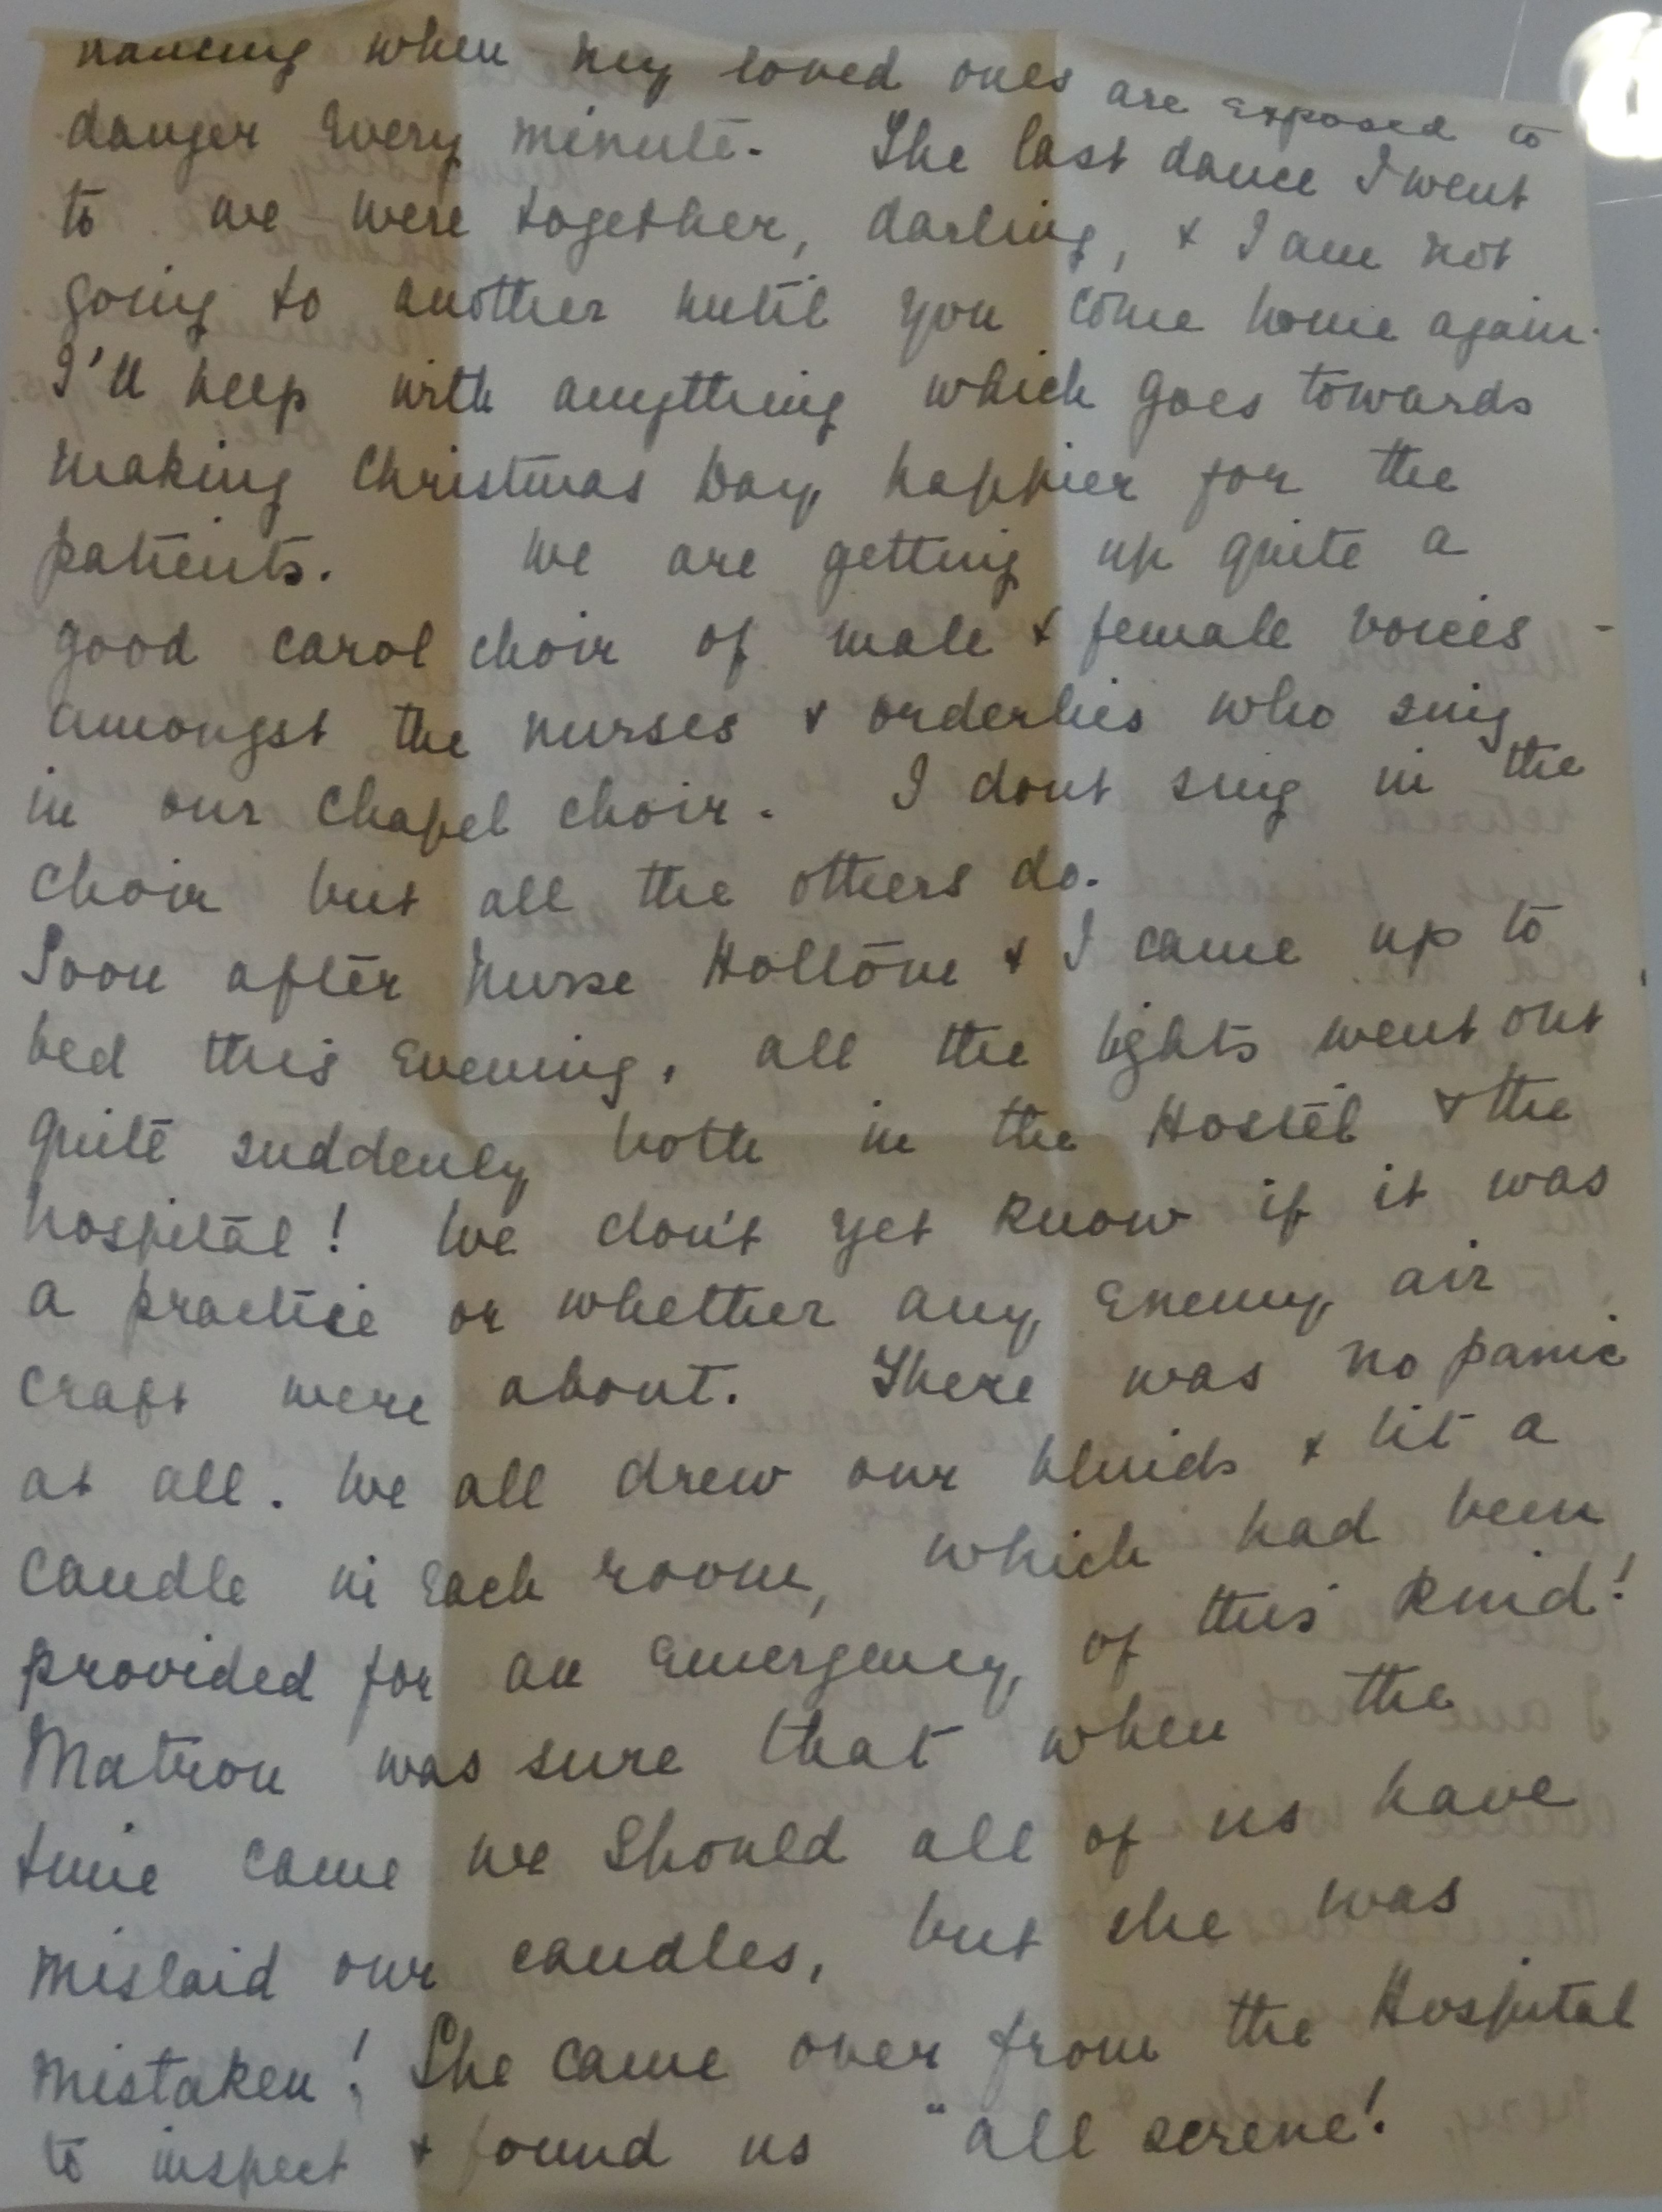 dancing when my loved ones are exposed to
danger every minute. The last dance I went
to we were together, darling, & I am not
going to another until you come home again.
I'll help with anything which goes towards
making Christmas Day happier for the
patients. We are getting up quite a
good carol choir of male & female voices -
amongst the nurses & orderlies who sing
in our Chapel choir. I dont sing in the
choir but all the others do.
Soon after Nurse Hollōm & I came up to
bed this evening, all the lights went out
quite suddenly both in the Hostel & the
hospital! We don't yet know if it was
a practice or whether any enemy air
craft were about. There was no panic
at all. We all drew our blinds & lit a
candle in each room, which had been
provided for an emergency of this kind!
Matron was sure that when the
time came we should all of us have
mislaid our candles, but she was
mistaken! She came over from the Hospital
to inspect & found us "all serene!